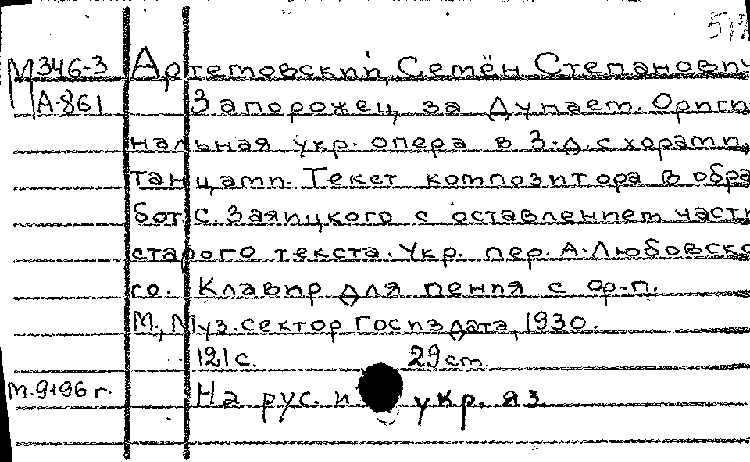 М346-3 Артемовский, Семён Степанович
А-861 Запорожец за Дунаем. Ориги
нальная укр. опера в 3-д. с хорами,
танцами. Текст композитора в обра
бот. С. Заяицкого с оставлением части
старого текста. Укр. пер. А. Любовско
го. Клавир для пения с ф-п.
М., Муз. сектор Госиздата, 1930.
121 с. 29 см
М-9196 г. На рус. и укр. яз.